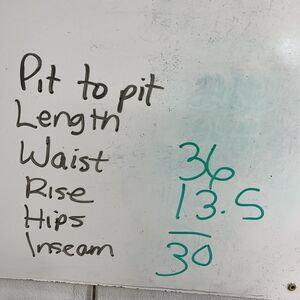 Pit to pit
Length
Waist 36
Rise 13.5
Hips —
Inseam 30